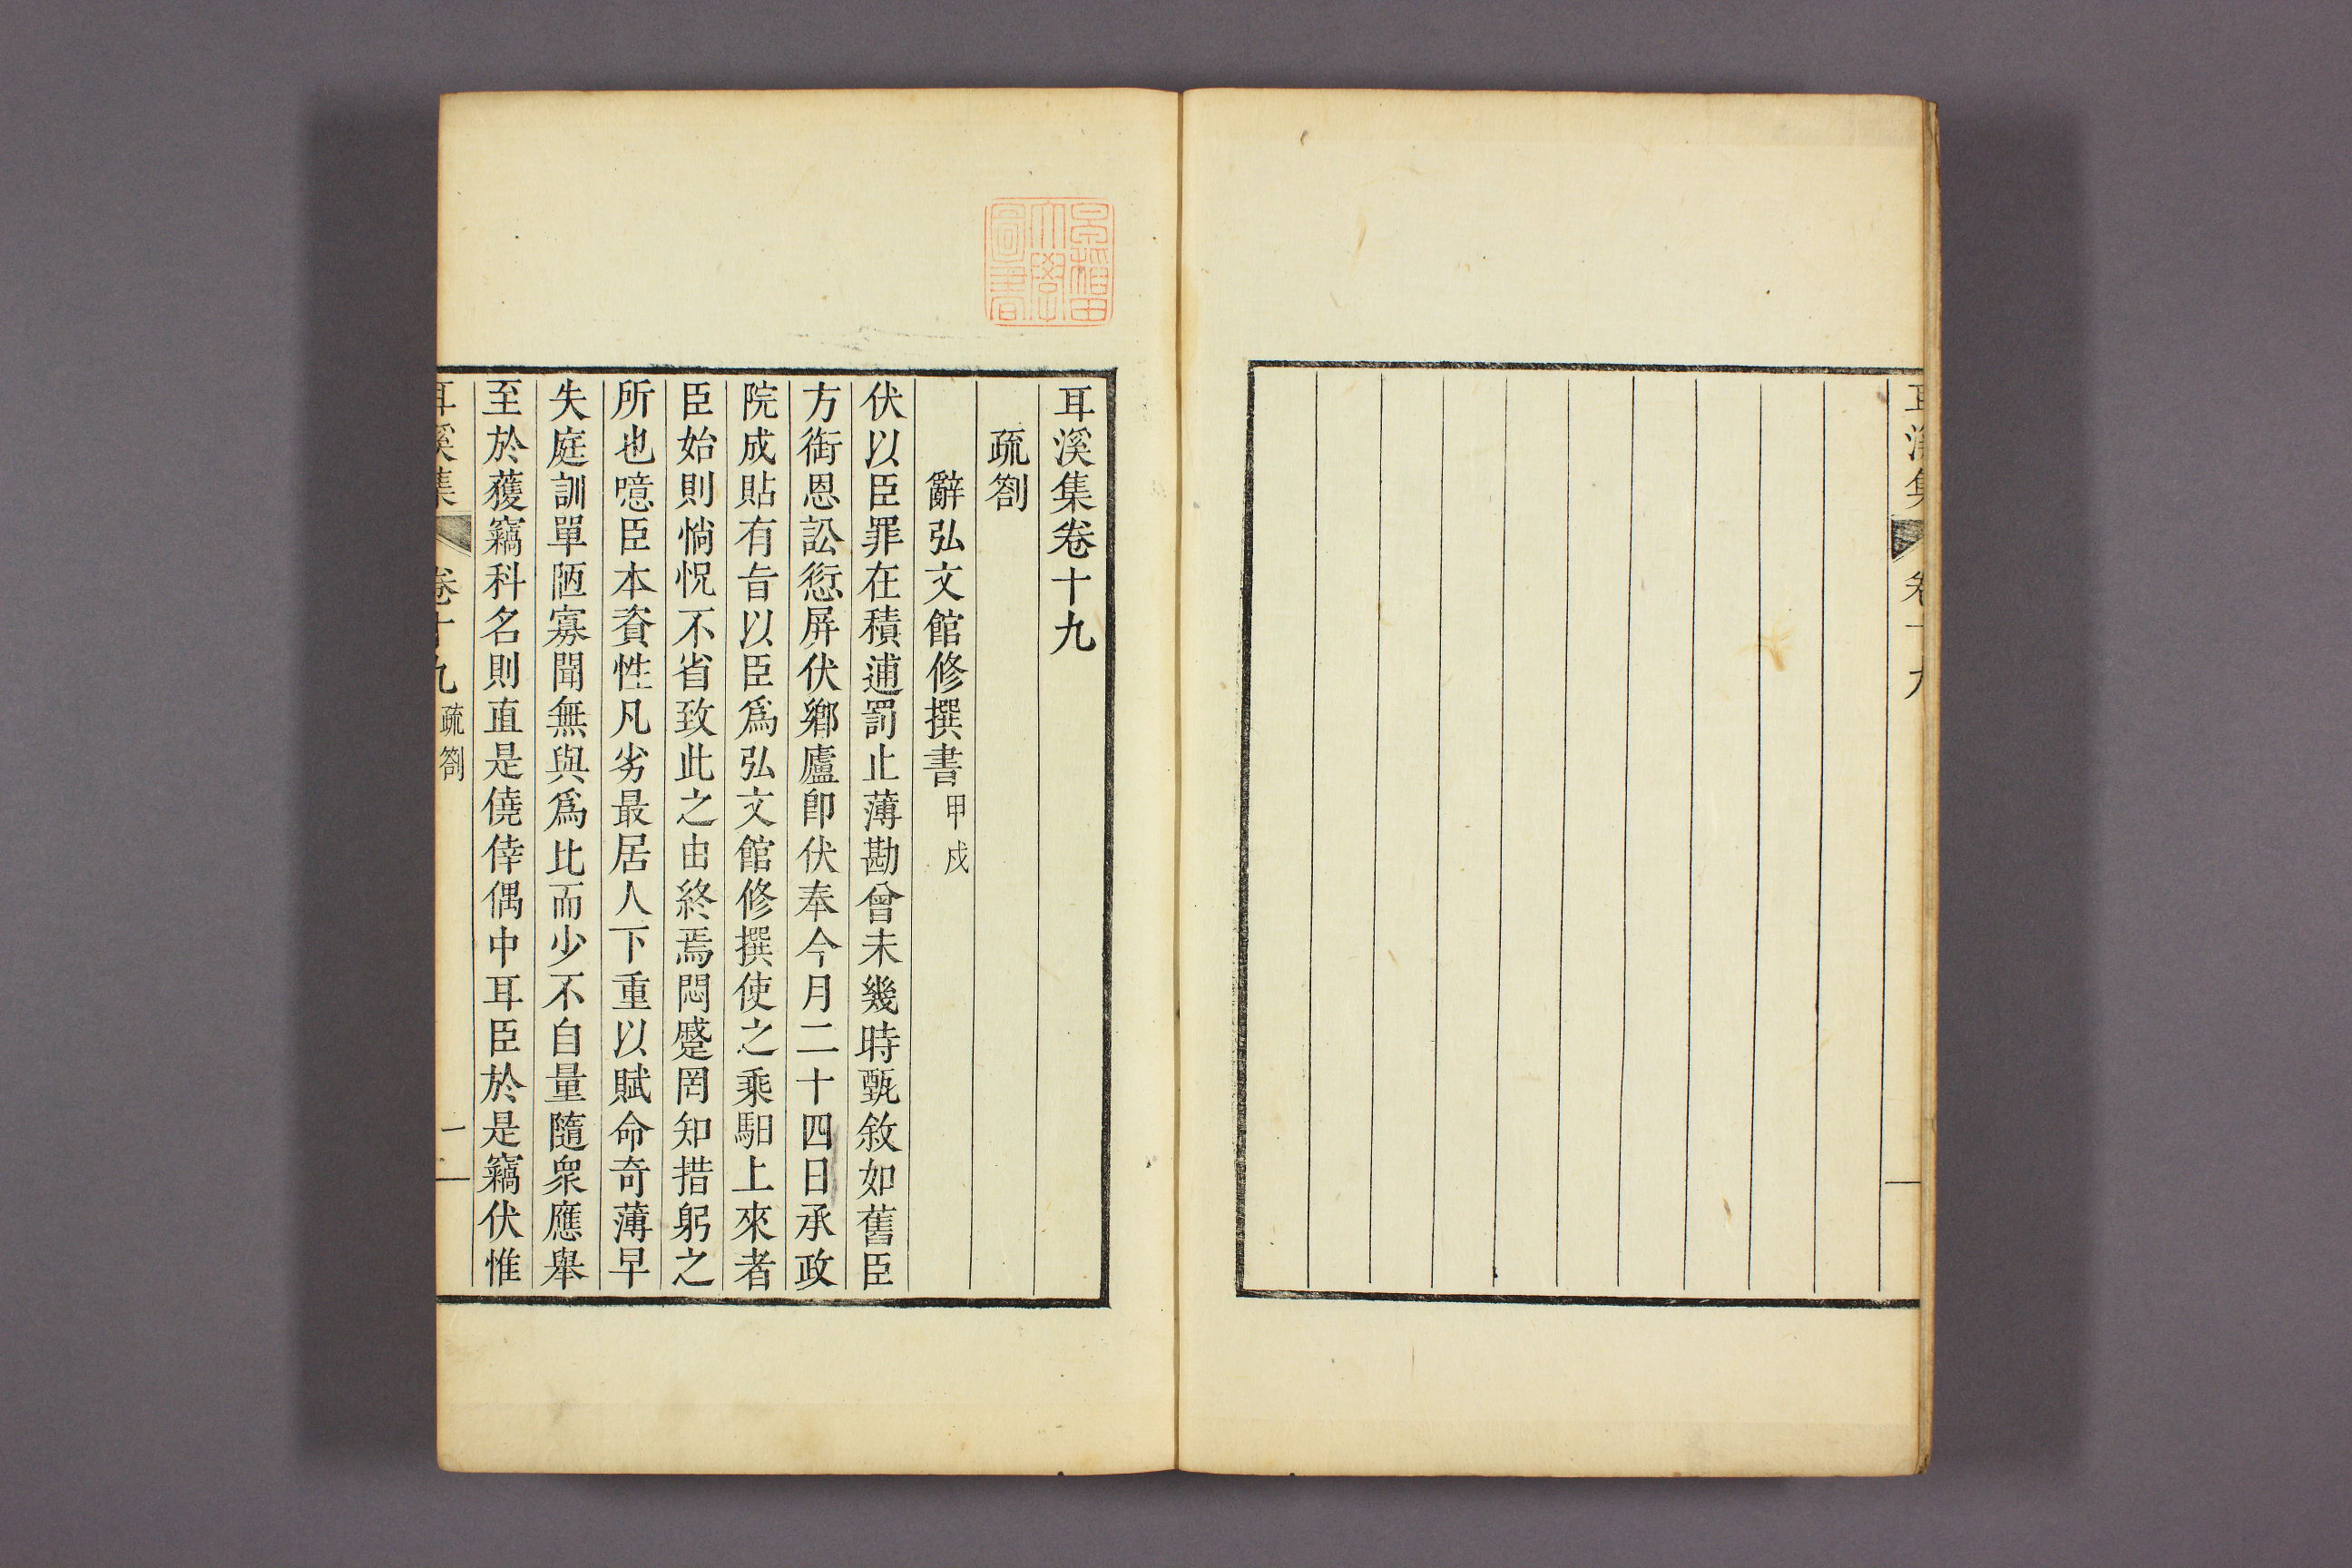 耳溪集卷十九
疏劄
辭弘文館修撰書甲戌
伏以臣罪在積逋罰止薄勘曾未幾時甄敘如舊臣
方銜恩訟愆屏伏鄕廬卽伏奉今月二十四日承政
院成貼有旨以臣爲弘文館修撰使之乘馹上來者
臣始則惝怳不省致此之由終焉悶蹙罔知措躬之
所也噫臣本資性凡劣最居人下重以賦命奇薄早
失庭訓單陋寡聞無與爲比而少不自量隨衆應擧
至於獲竊科名則直是僥倖偶中耳臣於是竊伏惟
耳溪集 卷十九 疏劄 一
耳溪集 卷十九
早稻田大學圖書